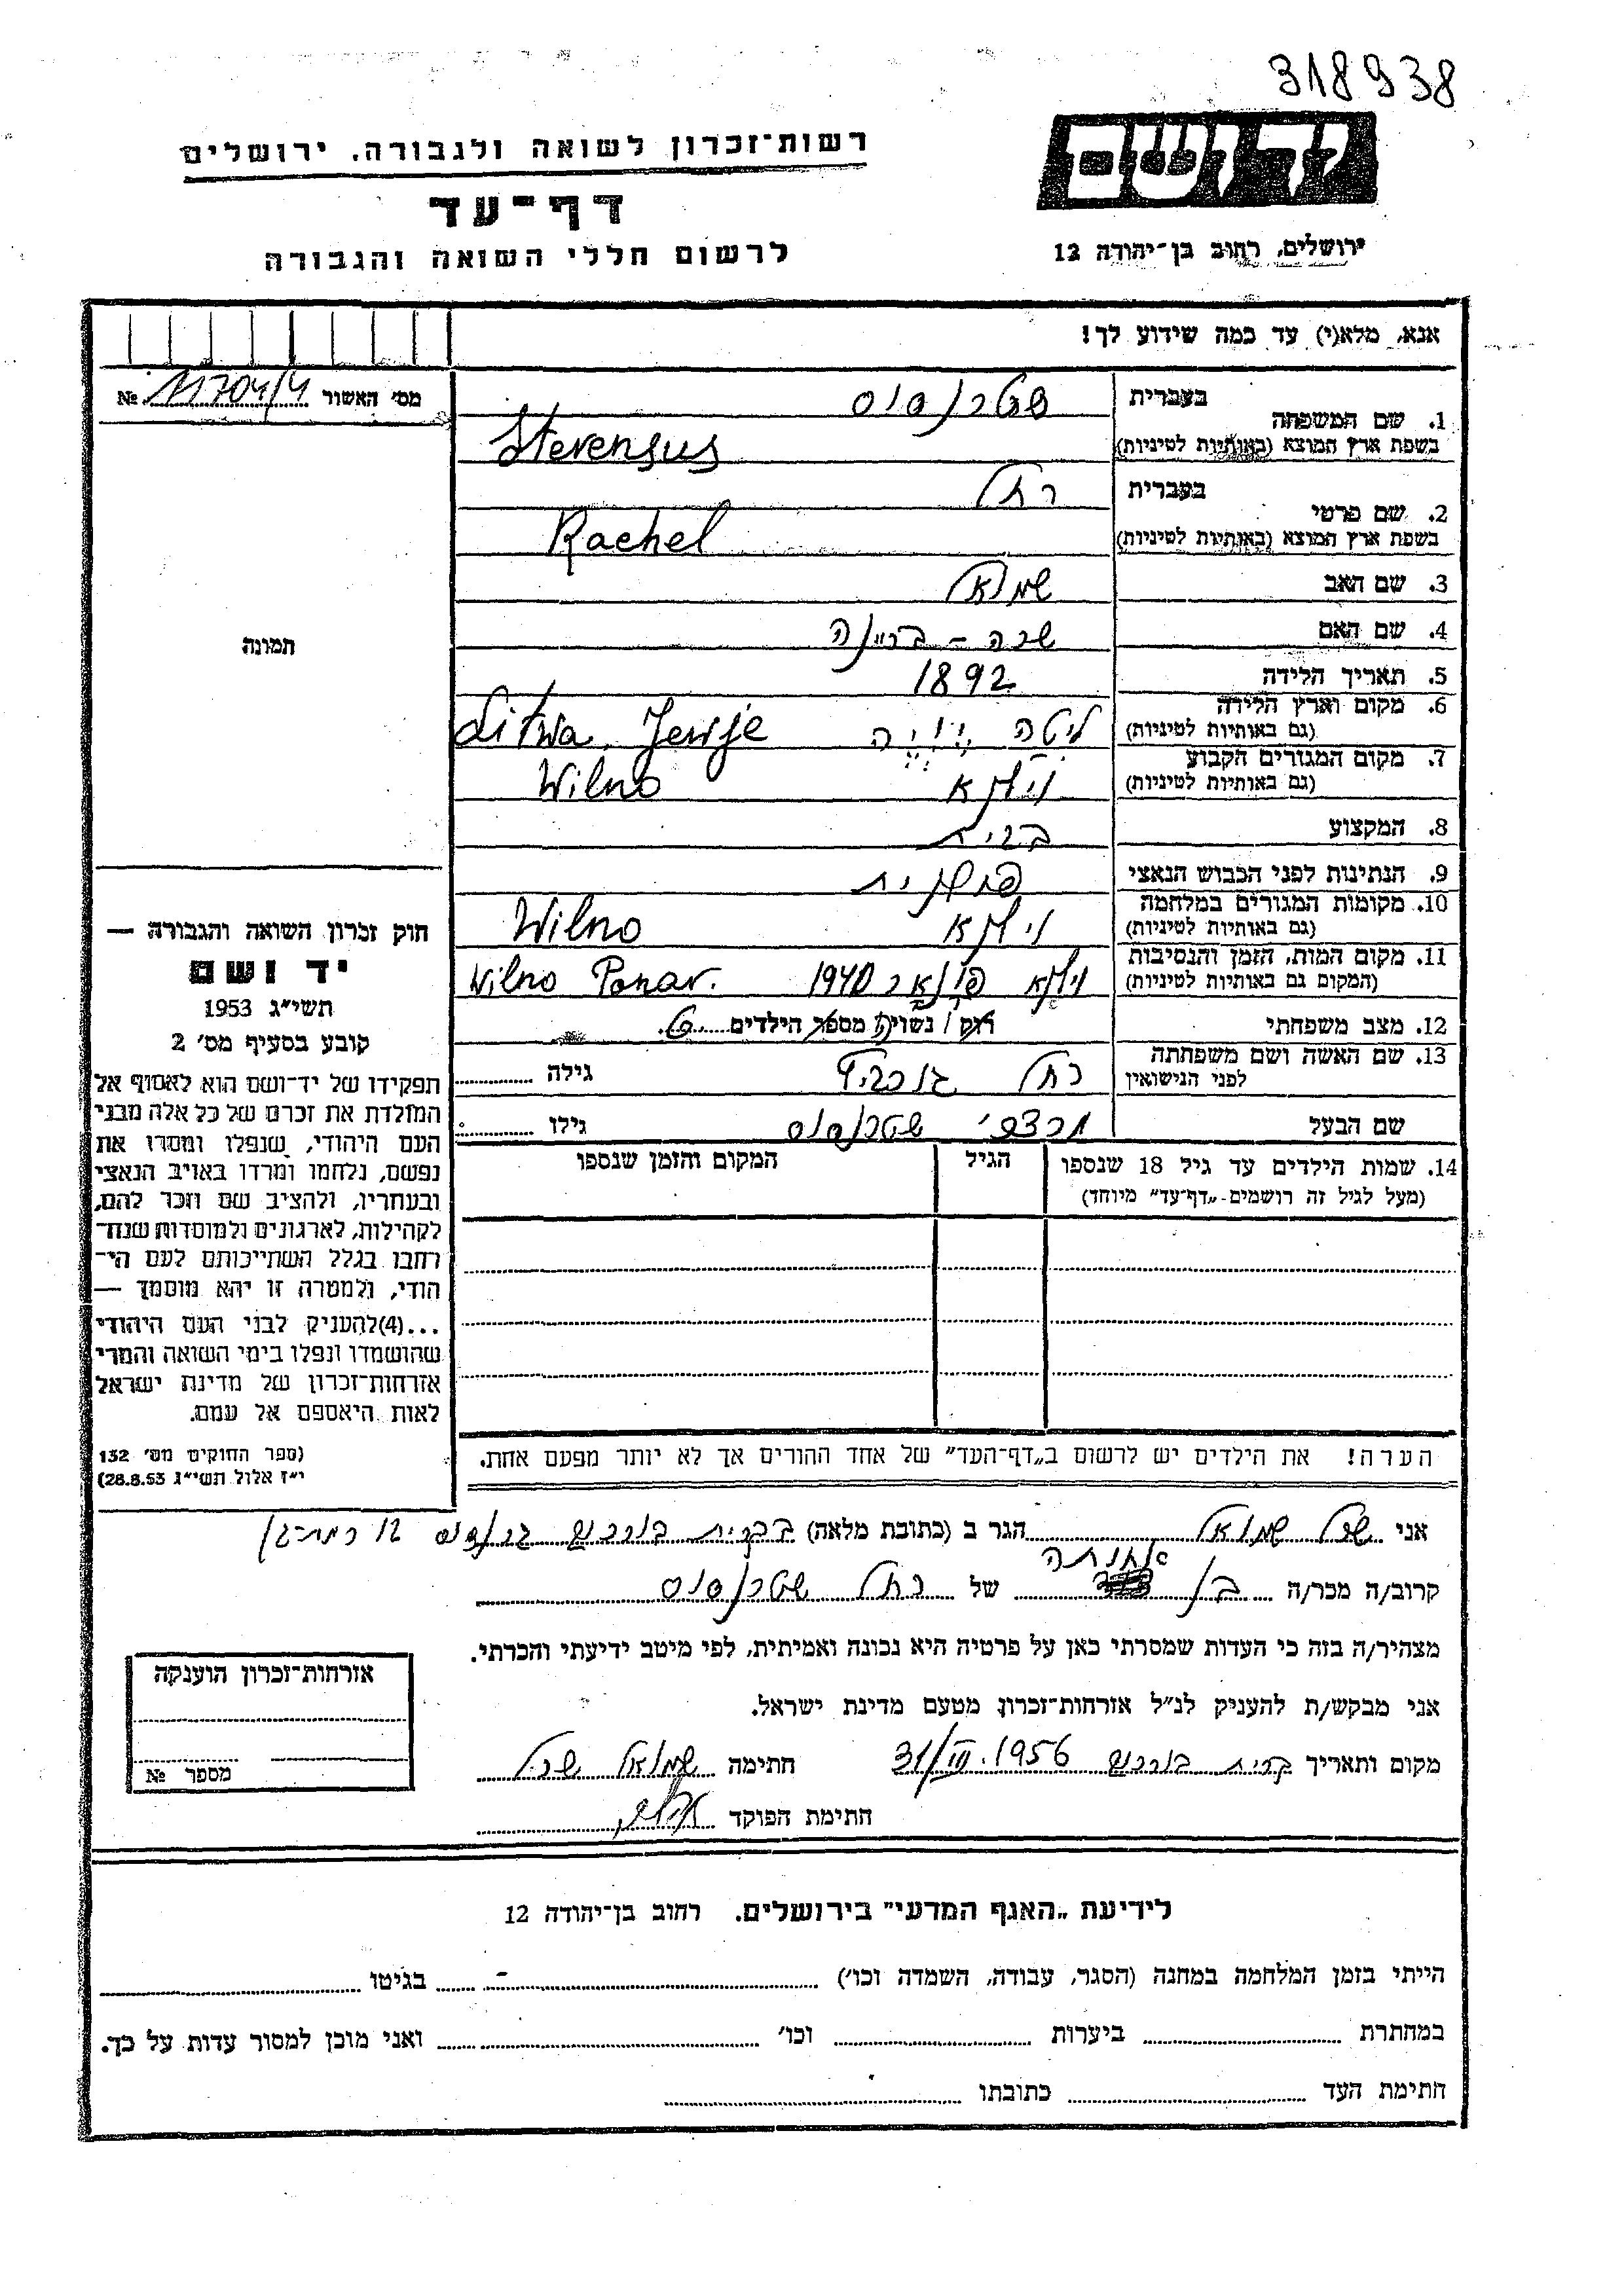 318938
רשות־זכרון לשואה ולגבורה. ירושלים
דף־עד
לרשום חללי השואה והגבורה
יד ושם
ירושלים, רחוב בן־יהודה 12
אנא, מלא(י) עד כמה שידוע לך!
מס' האשור 11704/4 №
תמונה
1. שם המשפחה בעברית שטרנסוס
בשפת ארץ המוצא (באותיות לטיניות) Sterensus
2. שם פרטי בעברית רחל
בשפת ארץ המוצא (באותיות לטיניות) Rachel
3. שם האב שמואל
4. שם האם שרה - בריינה
5. תאריך הלידה 1892
6. מקום וארץ הלידה (גם באותיות לטיניות) ליטה Litwa.
7. מקום המגורים הקבוע (גם באותיות לטיניות) וילנא Wilno
8. המקצוע
9. הנתינות לפני הכבוש הנאצי פולנית
10. מקומות המגורים במלחמה (גם באותיות לטיניות) וילנא Wilno
11. מקום המות, הזמן והנסיבות (המקום גם באותיות לטיניות) וילנא פונאר Wilno Ponar.
12. מצב משפחתי רוק / נשוי מספר הילדים
13. שם האשה ושם משפחתה לפני הנישואין רחל גילה
שם הבעל שטרנסוס גילו
14. שמות הילדים עד גיל 18 שנספו (מעל לגיל זה רושמים „דף־עד" מיוחד) הגיל המקום והזמן שנספו
חוק זכרון השואה והגבורה —
יד ושם
תשי"ג 1953
קובע בסעיף מס' 2
תפקידו של יד־ושם הוא לאסוף אל
המולדת את זכרם של כל אלה מבני
העם היהודי, שנפלו ומסרו את
נפשם, נלחמו ומרדו באויב הנאצי
ובעוזריו, ולהציב שם וזכר להם,
לקהילות, לארגונים ולמוסדות שנח־
רבו בגלל השתייכותם לעם הי־
הודי, ולמטרה זו יהא מוסמך —
...(4) להעניק לבני העם היהודי
שהושמדו ונפלו בימי השואה והמרי
אזרחות־זכרון של מדינת ישראל
לאות היאספם אל עמם.
(ספר החוקים מס' 132
י"ז אלול תשי"ג 28.8.53)
הערה! את הילדים יש לרשום ב„דף־העד" של אחד ההורים אך לא יותר מפעם אחת.
אני שמואל הגר ב (כתובת מלאה) בקרית בורוכוב 12 רמת־גן
קרוב/ה מכר/ה בן אחותה של רחל שטרנסוס
מצהיר/ה בזה כי העדות שמסרתי כאן על פרטיה היא נכונה ואמיתית, לפי מיטב ידיעתי והכרתי.
אני מבקש/ת להעניק לנ"ל אזרחות־זכרון מטעם מדינת ישראל.
מקום ותאריך קרית בורוכוב 31/III.1956 חתימה שמואל
חתימת הפוקד
אזרחות־זכרון הוענקה
מספר №
לידיעת „האגף המדעי" בירושלים. רחוב בן־יהודה 12
הייתי בזמן המלחמה במחנה (הסגר, עבודה, השמדה וכו') - בגיטו
במחתרת ביערות וכו' ואני מוכן למסור עדות על כך.
חתימת העד כתובתו